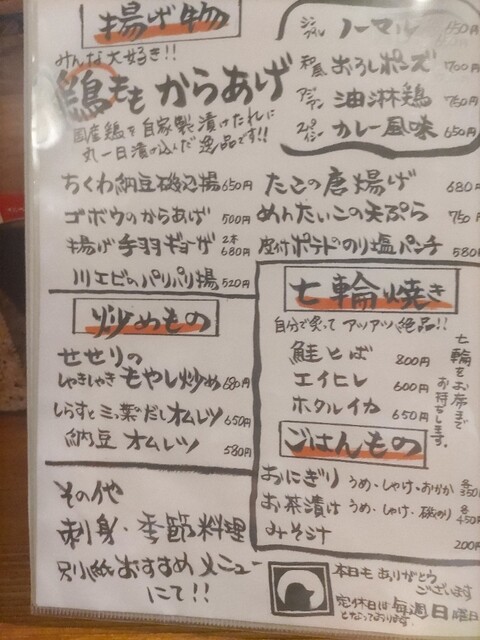 揚げ物
みんな大好き!!
鶏もも からあげ
国産鶏を自家製漬けたれに
丸一日漬け込んだ逸品です!!
シンプル ノーマル 650円
和風 おろしポンズ 700円
アジアン 油淋鶏 750円
スパイシー カレー風味 650円
ちくわ納豆磯辺揚 650円
ゴボウのからあげ 500円
揚げ手羽ギョーザ 2本 680円
川エビのパリパリ揚 520円
たこの唐揚げ 680円
めんたいこの天ぷら 750円
皮付ポテトのり塩パンチ 580円
炒めもの
せせりの
しゃきしゃきもやし炒め 680円
しらすと三つ葉だしオムレツ 650円
納豆オムレツ 580円
その他
刺身・季節料理
別紙おすすめメニュー
にて!!
七輪焼き
自分で炙って アツアツ絶品!!
鮭とば 800円
エイヒレ 600円
ホタルイカ 650円
七輪をお席まで
お持ちします。
ごはんもの
おにぎり うめ・しゃけ・おかか 各350円
お茶漬け うめ・しゃけ・磯のり 各450円
みそ汁 200円
本日もありがとう
ございます
定休日は毎週日曜日
となっております。